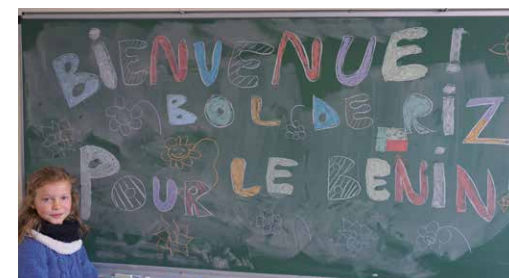 BIENVENUE!
BOL DE RIZ
POUR LE BENIN